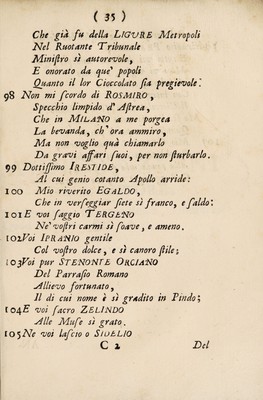 ( 35 )
Che già fu della LIGURE Metropoli
Nel Ruotante Tribunale
Ministro sì autorevole,
E onorato da que' popoli
Quanto il lor Cioccolato sia pregievole.
98 Non mi scordo di ROSMIRO,
Specchio limpido d'Astrea,
Che in MILANO a me porgea
La bevanda, ch'ora ammiro,
Ma non voglio quà chiamarlo
Da gravi affari suoi, per non sturbarlo.
99 Dottissimo IRESTIDE,
Al cui genio cotanto Apollo arride:
100 Mio riverito EGALDO,
Che in verseggiar siete sì franco, e saldo:
101 E voi saggio TERGENO
Ne' vostri carmi sì soave, e ameno.
102 Voi IPRANIO gentile
Col vostro dolce, e sì canoro stile;
103 Voi pur STENONTE ORCIANO
Del Parrasio Romano
Allievo fortunato,
Il di cui nome è sì gradito in Pindo;
104 E voi sacro ZELINDO
Alle Muse sì grato.
105 Ne voi lascio o SIDELIO
C 2 Del